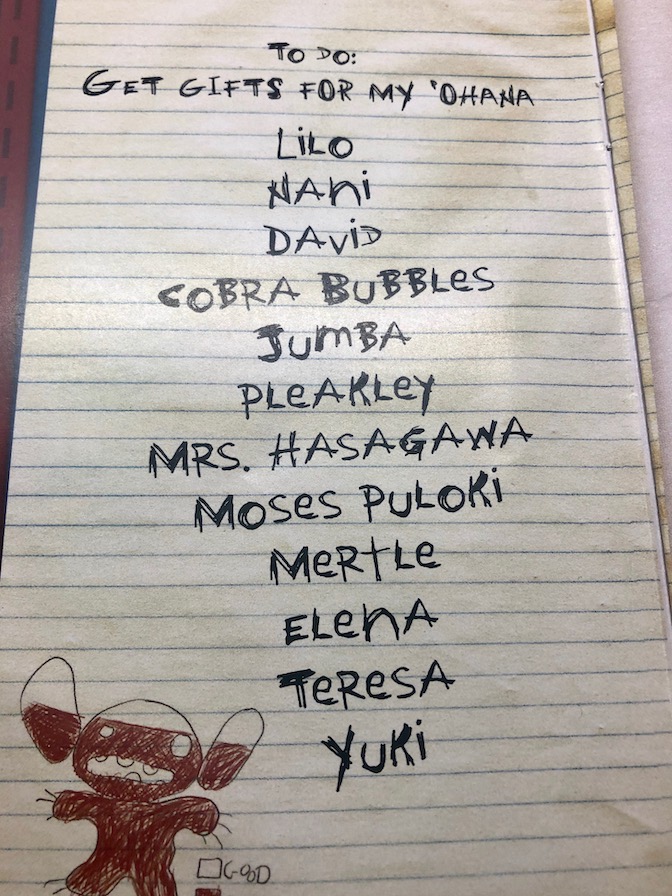 TO DO:
GET GIFTS FOR MY 'OHANA
LiLO
NANi
DAViD
COBRA BUBBLES
JUMBA
PLEAKLEY
MRS. HASAGAWA
MOSES PULOKi
MERTLE
ELENA
TERESA
YUKi
GOOD